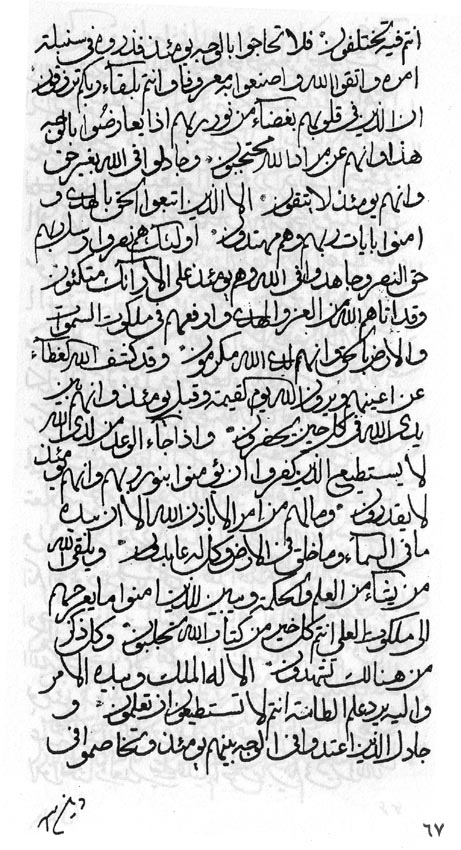 انتم فيه تختلفون فلا تحاجوا بالوجه يومئذ فذروه في سنبلة
امره واتقوا الله واصنعوا معروفا وانتم بلقاء ربكم ترزقون
ان الذين في قلوبهم بغضاء من نور ربهم اذا يعارضوا بالوجه
هذا وانهم عن مراد الله محتجبون وجادلوا في الله بغير حق
وانهم يومئذ لا يتقون الا الذين اتبعوا الحق بالهدى و
امنوا بايات ربهم وهم مهتدون اولئك هم نصروا رسل ربهم
حق النصر وجاهدوا في الله وهم يومئذ على الارائك متكئون
وقد اتاهم الله من العز والهدى وارفعهم في ملكوت السموات
والارض بالحق وانهم لدى الله مكرمون وقد كشف الله الغطاء
عن اعينهم ويرون الله يوم القيمة وقبل يومئذ وانهم بين
يدى الله في كل حين يحضرون واذا جاء الوعد من لدى الله
لا يستطيع الذين كفروا ان يؤمنوا بنور ربهم وانهم يومئذ
لا يقدرون ومالهم من امر الا باذن الله الا ان بيده
ما في السماء وما خلق في الارض وكل له عابدون ويلقى الله
من يشاء من العلم والحكمة ويبين للذين امنوا ما يعرجهم
الى ملكوت العلى انتم كل خير من كتاب الله تجلبون وكل ذكر
من هنالك تشهدون الا له الملك وبيده الامر
واليه يرد علم الطامة انتم لا تستطيعون ان تعلمون و
جادل الذين اعتدوا في الوجه بينهم يومئذ وتخاصموا في
٦٧